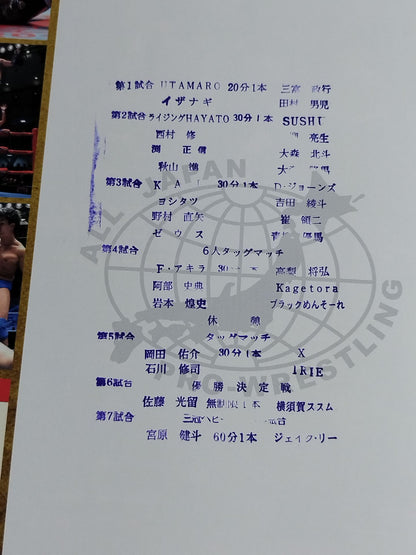 第1試合 UTAMARO 20分1本 三富 政行
イザナギ 田村 男児
第2試合 ライジングHAYATO 30分1本 SUSHI
西村 修 亮生
渕 正信 大森 北斗
秋山 準
第3試合 KAI 30分1本 D・ジョーンズ
ヨシタツ 吉田 綾斗
野村 直矢 崔 領二
ゼウス 優馬
第4試合 6人タッグマッチ
F・アキラ 30分1本 高梨 将弘
阿部 史典 Kagetora
岩本 煌史 ブラックめんそーれ
休 憩
第5試合 タッグマッチ
岡田 佑介 30分1本 X
石川 修司 IRIE
第6試合 優勝決定戦
佐藤 光留 無制限1本 横須賀ススム
第7試合 三冠ヘビー 試合
宮原 健斗 60分1本 ジェイク・リー
ALL JAPAN PRO-WRESTLING